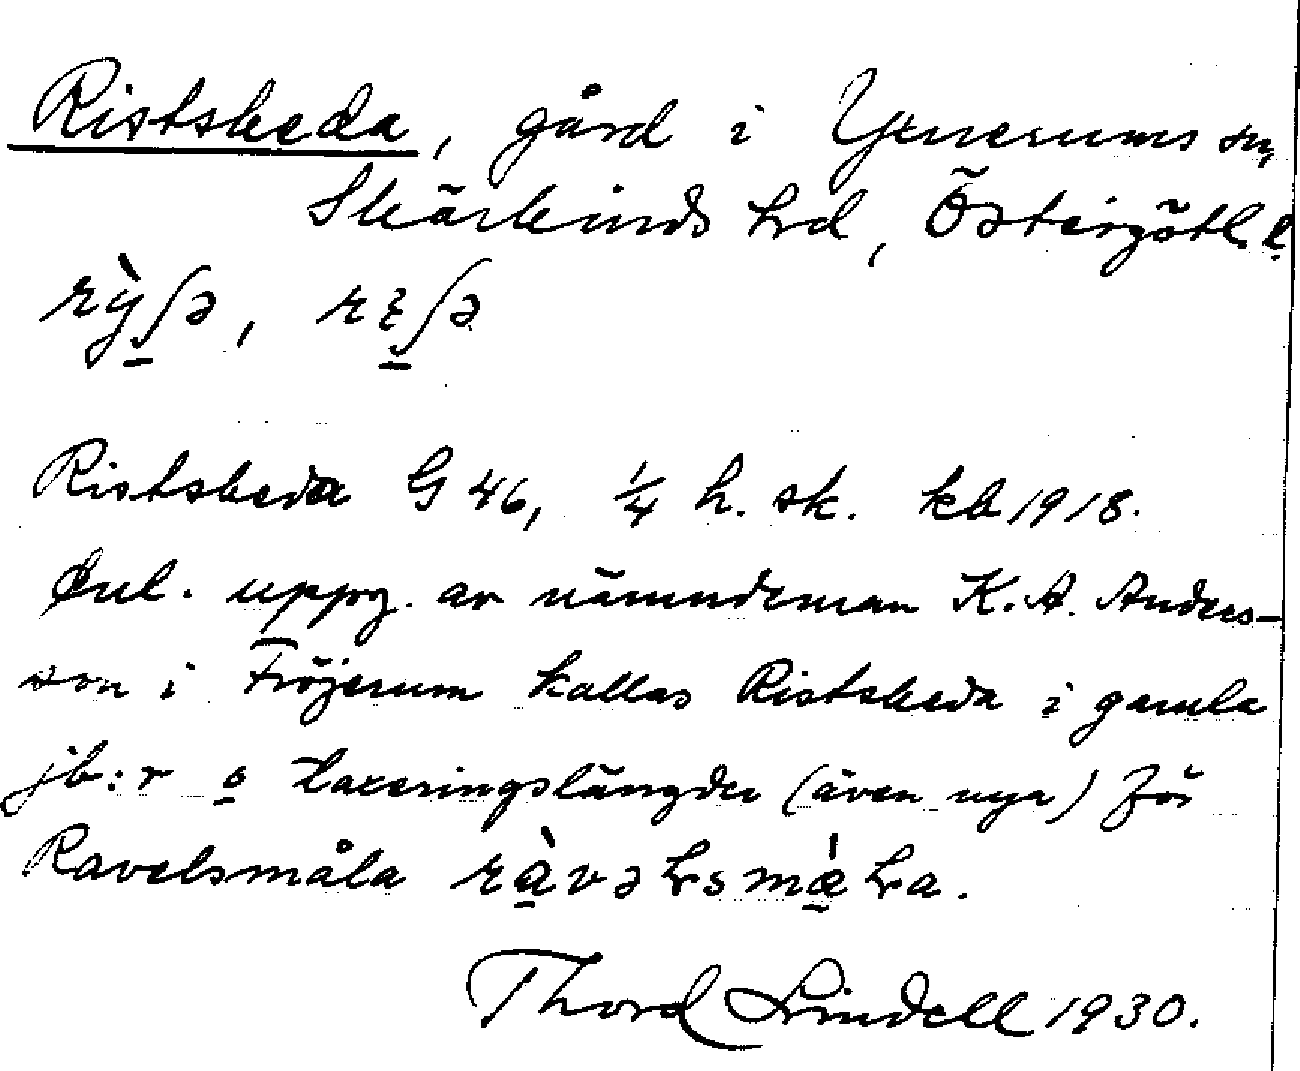 Ristskeda, gård i Yxnerums sn,
Skärkinds hrd, Östergötl. l.
Ristskeda G 46, 1/4 h. sk. kb 1918.
Enl. uppg. av nämndeman K. A. Anders-
son i Fröjerum kallas Ristskeda i gamla
jb:r o taxeringslängder (även nya) för
Ravelsmåla
Thord Lindell 1930.